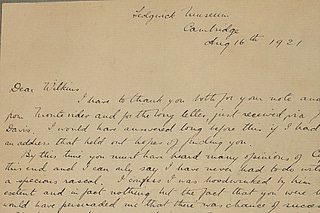 Sedgwick Museum
Cambridge
Aug 16th 1921
Dear Wilkins,
I have to thank you both for your note and
from Montevideo and for the long letter, just received via
Davis. I would have answered long before this if I had
an address that held out hopes of finding you.
By this time you must have heard many opinions of
this end and I can only say I have never had to do with
a specious rascal. I confess I was hoodwinked by him
extent and in fact nothing but the fact that you were
would have persuaded me that there was chance of success